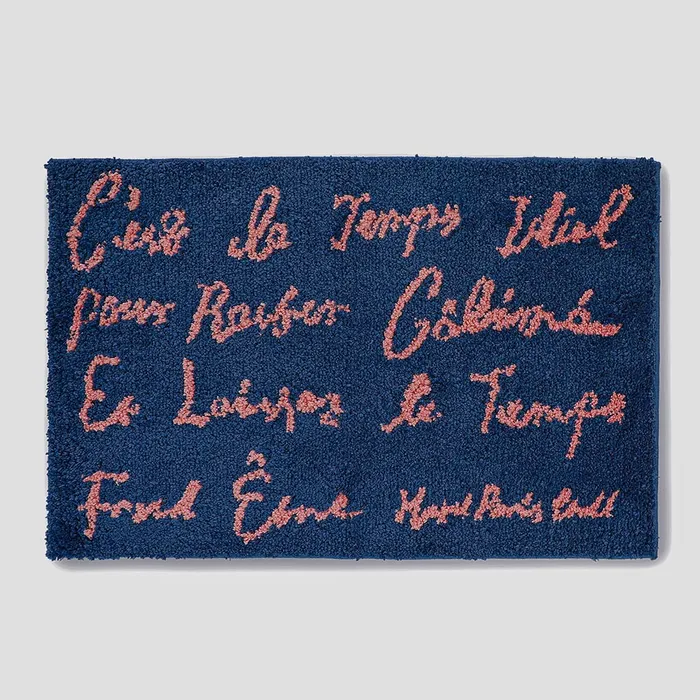 C'est le Temps Idéal
pour Rester Câliné
Et Laisser le Temps
Froid Être Paris